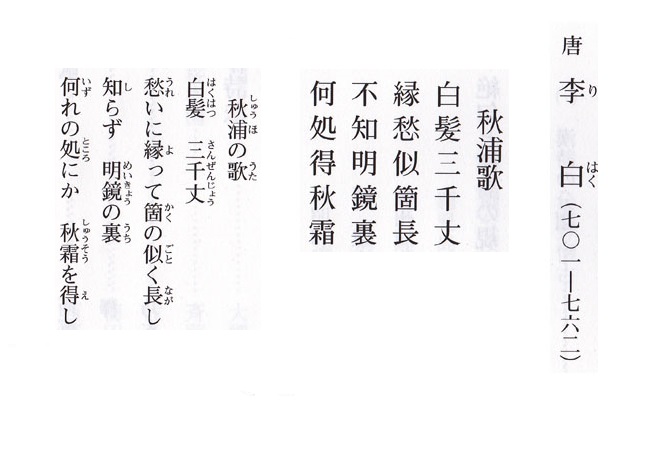 唐　李白（七〇一―七六二）
秋浦歌
白髪三千丈
縁愁似箇長
不知明鏡裏
何処得秋霜
秋浦の歌
白髪　三千丈
愁いに縁って箇の似く長し
知らず　明鏡の裏
何れの処にか　秋霜を得し